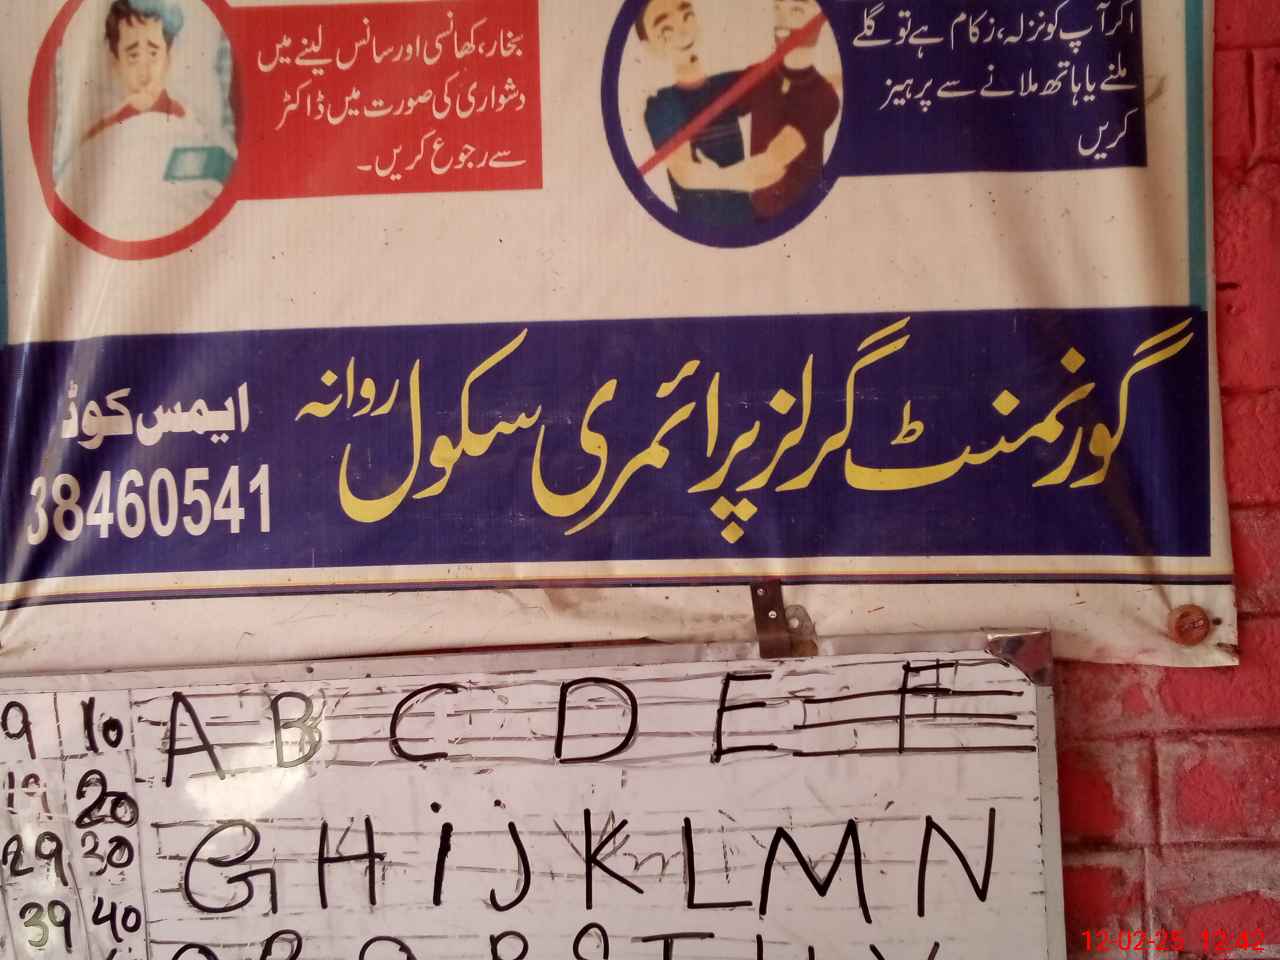 اگر آپ کو نزلہ، زکام ہے تو گلے
ملنے یا ہاتھ ملانے سے پرہیز
کریں
بخار، کھانسی اور سانس لینے میں
دشواری کی صورت میں ڈاکٹر
سے رجوع کریں۔
گورنمنٹ گرلز پرائمری سکول روانہ
ایمس کوڈ
38460541
9 10 A B C D E F
19 20
29 30 G H i j K L M N
39 40
12-02-25 12:42